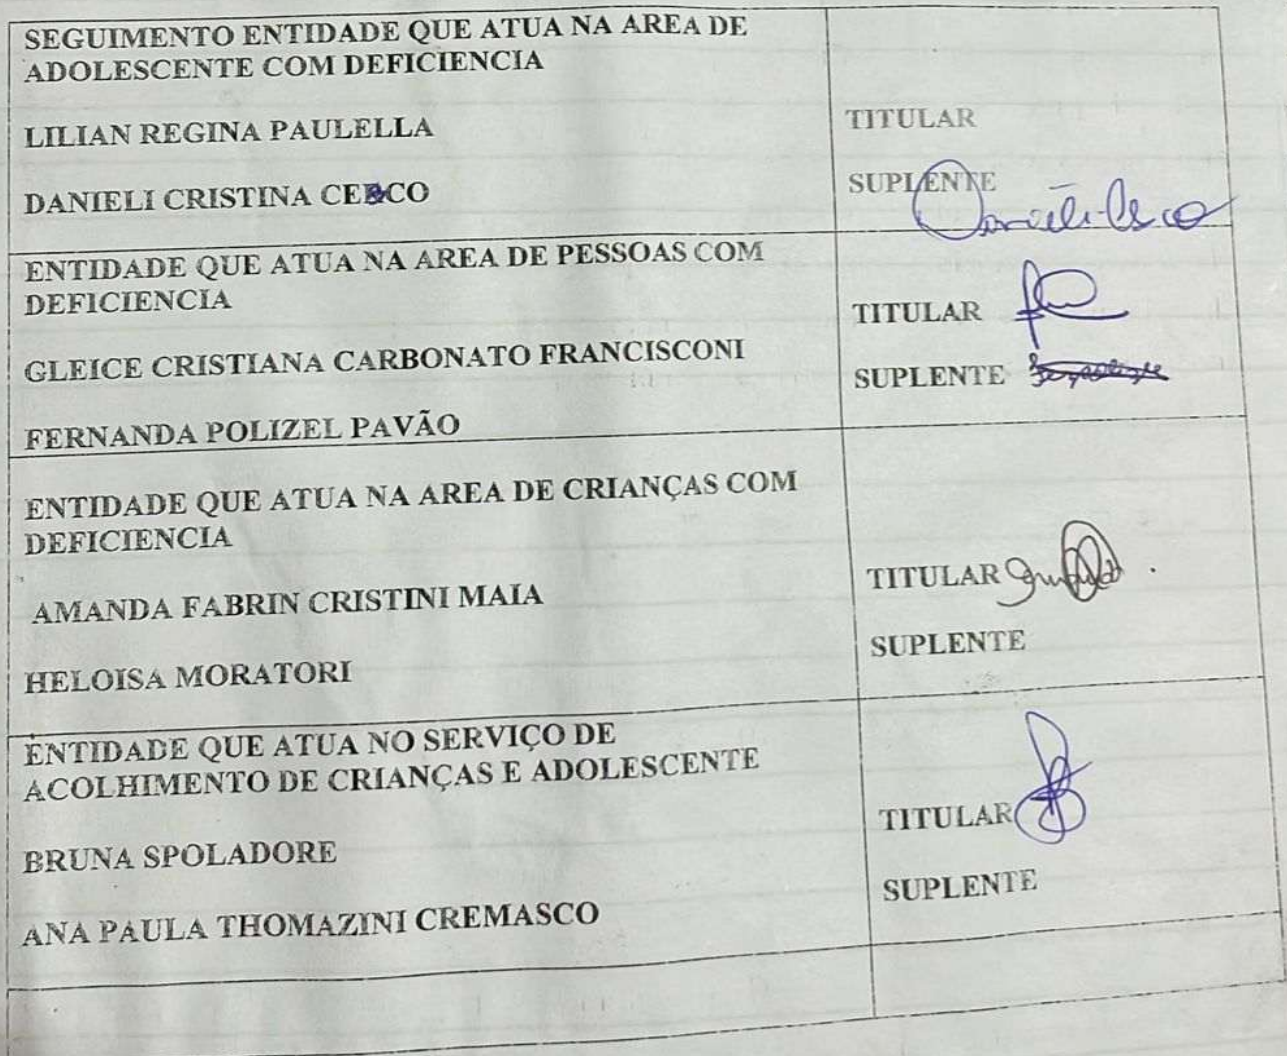 SEGUIMENTO ENTIDADE QUE ATUA NA AREA DE
ADOLESCENTE COM DEFICIENCIA
LILIAN REGINA PAULELLA
TITULAR
DANIELI CRISTINA CESCO
SUPLENTE
Danieli Cesco
ENTIDADE QUE ATUA NA AREA DE PESSOAS COM
DEFICIENCIA
GLEICE CRISTIANA CARBONATO FRANCISCONI
TITULAR
FERNANDA POLIZEL PAVÃO
SUPLENTE
ENTIDADE QUE ATUA NA AREA DE CRIANÇAS COM
DEFICIENCIA
AMANDA FABRIN CRISTINI MAIA
TITULAR
HELOISA MORATORI
SUPLENTE
ENTIDADE QUE ATUA NO SERVIÇO DE
ACOLHIMENTO DE CRIANÇAS E ADOLESCENTE
BRUNA SPOLADORE
TITULAR
ANA PAULA THOMAZINI CREMASCO
SUPLENTE